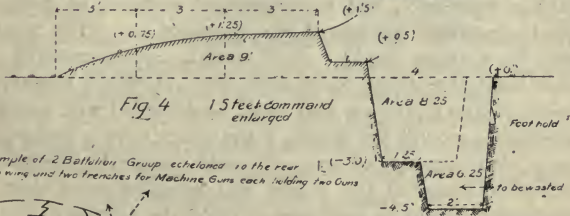 3' 3' 3'
(+1.5'
(+0.75) (+1.25)
(+0.5)
Area 9'
1'
4 (+0."
Fig. 4 1 5 feet command
enlarged
Area 8.25
Foot hold
mple of 2 Battalion Group echeloned to the rear (-3.0)
wing and two trenches for Machine Guns each holding two Guns
1.25
Area 6.25
to be wasted
-4.5' 2'